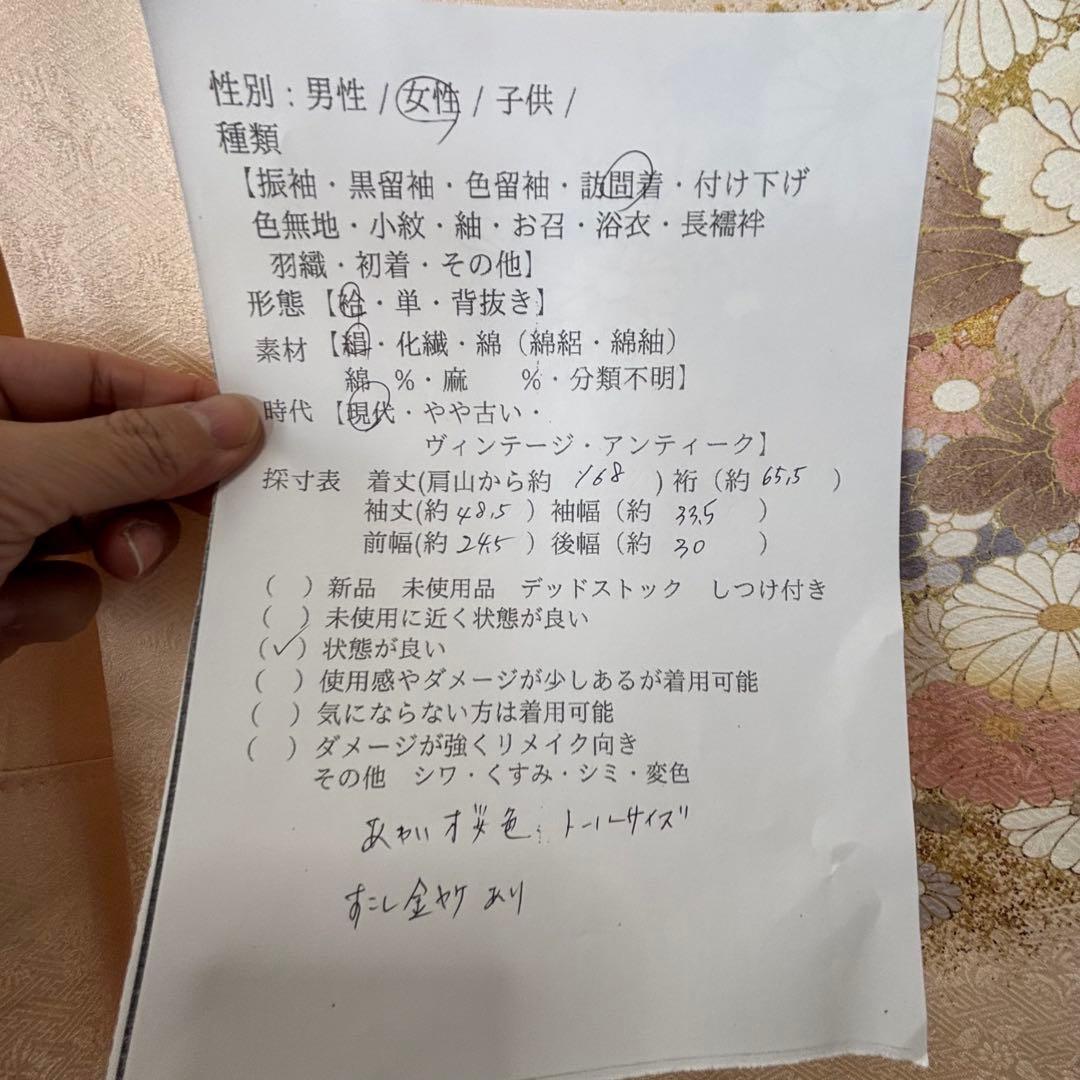 性別：男性 / 女性 / 子供 /
種類
【振袖・黒留袖・色留袖・訪問着・付け下げ
色無地・小紋・紬・お召・浴衣・長襦袢
羽織・初着・その他】
形態【袷・単・背抜き】
素材【絹・化繊・綿（綿絽・綿紬）
綿　%・麻　　%・分類不明】
時代【現代・やや古い・
ヴィンテージ・アンティーク】
採寸表　着丈(肩山から約 168 ) 裄（約 65.5 ）
袖丈(約 48.5 ）袖幅（約 33.5 ）
前幅(約 24.5 ）後幅（約 30 ）
（　）新品　未使用品　デッドストック　しつけ付き
（　）未使用に近く状態が良い
（✓）状態が良い
（　）使用感やダメージが少しあるが着用可能
（　）気にならない方は着用可能
（　）ダメージが強くリメイク向き
その他　シワ・くすみ・シミ・変色
あわい桜色、トールサイズ
すこし金ヤケあり